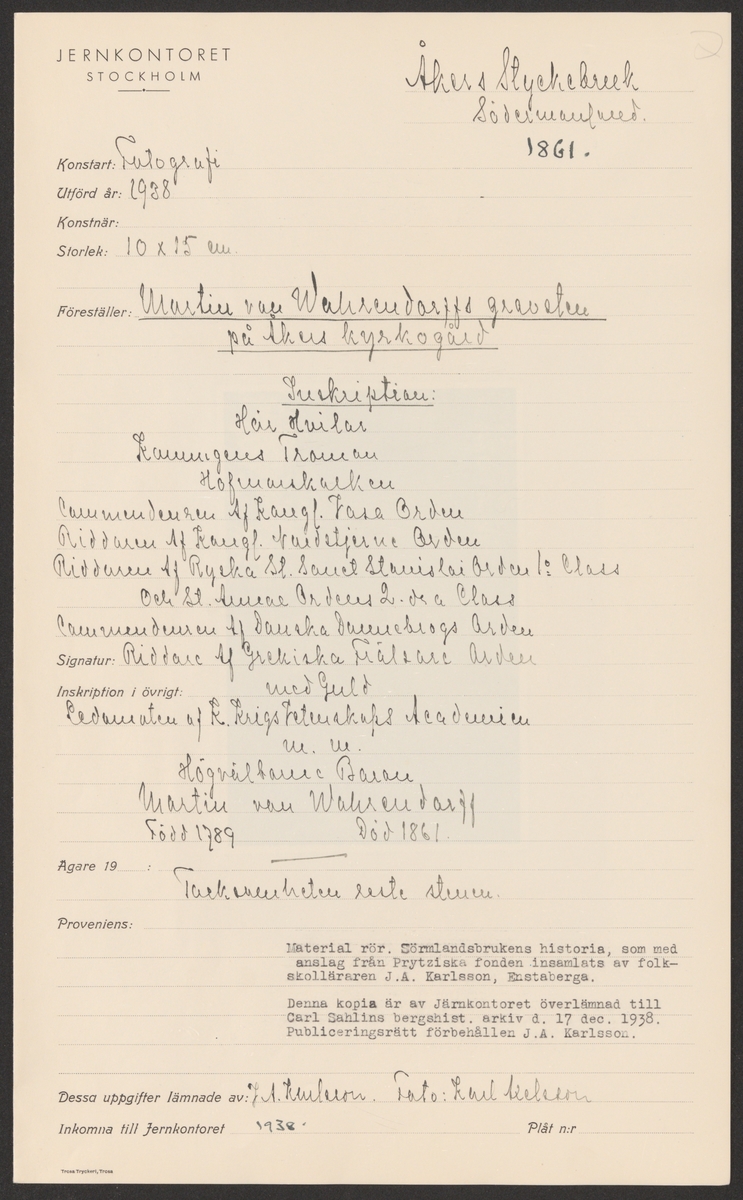 JERNKONTORET
STOCKHOLM
Åkers Styckebruk
Södermanland.
1861.
Konstart: Fotografi
Utförd år: 1938
Konstnär:
Storlek: 10 x 15 cm.
Föreställer: Martin von Wahrendorffs gravsten
på Åkers kyrkogård
Inskription:
Här Hvilar
Konungens Troman
Hofmarskalken
Commendeuren Af Kongl. Vasa Orden
Riddaren Af Kongl. Nordstjerne Orden
Riddaren Af Ryska St. Sanct Stanislai Orden 1: Class
Och St. Annae Ordens 2-dra Class
Commendeuren Af Danska Dannebrogs Orden
Signatur: Riddare Af Grekiska Frälsare Orden
Inskription i övrigt: med Guld
Ledamoten af K. KrigsVetenskaps Academien
m. m.
Högvälborne Baron
Martin von Wahrendorff
Född 1789 Död 1861.
Ägare 19 :
Tacksamheten reste stenen.
Proveniens:
Material rör. Sörmlandsbrukens historia, som med
anslag från Prytziska fonden insamlats av folk-
skolläraren J.A. Karlsson, Enstaberga.
Denna kopia är av Järnkontoret överlämnad till
Carl Sahlins bergshist. arkiv d. 17 dec. 1938.
Publiceringsrätt förbehållen J.A. Karlsson.
Dessa uppgifter lämnade av: J.A. Karlsson. Foto: Karl
Inkomna till Jernkontoret 1938. Plåt n:r
Trosa Tryckeri, Trosa